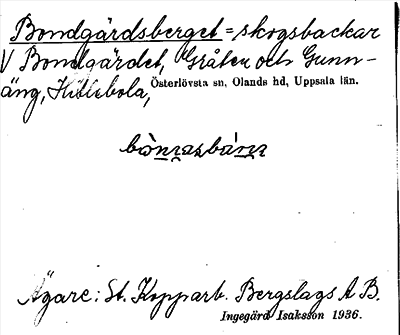 Bondgärdsberget = skogsbackar
V Bondgärdet, Gråten och Gunn-
äng, Hillebola, Österlövsta sn, Olands hd, Uppsala län.
Ägare: St. Kopparb. Bergslags A B.
Ingegärd Isaksson 1936.